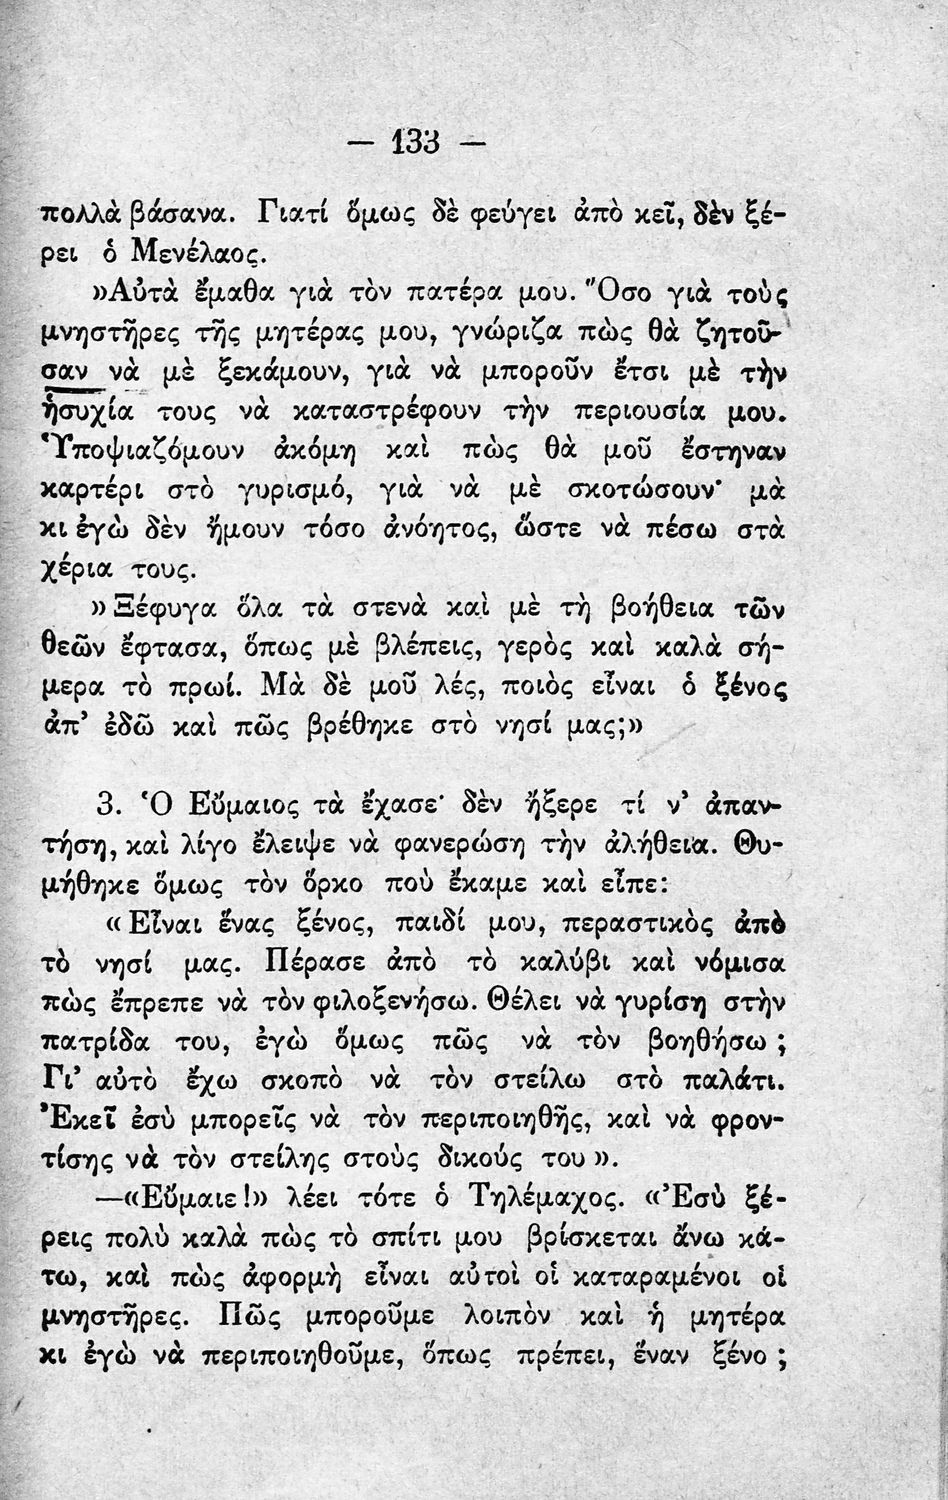 — 133 —
πολλὰ βάσανα. Γιατί ὅμως δὲ φεύγει ἀπὸ κεῖ, δὲν ξέ-
ρει ὁ Μενέλαος.
»Αὐτὰ ἔμαθα γιὰ τὸν πατέρα μου. Ὅσο γιὰ τοὺς
μνηστῆρες τῆς μητέρας μου, γνώριζα πὼς θὰ ζητοῦ-
σαν νὰ μὲ ξεκάμουν, γιὰ νὰ μποροῦν ἔτσι μὲ τὴν
ἡσυχία τους νὰ καταστρέφουν τὴν περιουσία μου.
Ὑποψιαζόμουν ἀκόμη καὶ πὼς θὰ μοῦ ἔστηναν
καρτέρι στὸ γυρισμό, γιὰ νὰ μὲ σκοτώσουν· μὰ
κι ἐγὼ δὲν ἤμουν τόσο ἀνόητος, ὥστε νὰ πέσω στὰ
χέρια τους.
»Ξέφυγα ὅλα τὰ στενὰ καὶ μὲ τὴ βοήθεια τῶν
θεῶν ἔφτασα, ὅπως μὲ βλέπεις, γερὸς καὶ καλὰ σή-
μερα τὸ πρωί. Μὰ δὲ μοῦ λές, ποιὸς εἶναι ὁ ξένος
ἀπ’ ἐδῶ καὶ πῶς βρέθηκε στὸ νησί μας;»
3. Ὁ Εὔμαιος τὰ ἔχασε· δὲν ἤξερε τί ν’ ἀπαν-
τήση, καὶ λίγο ἔλειψε νὰ φανερώση τὴν ἀλήθεια. Θυ-
μήθηκε ὅμως τὸν ὅρκο ποὺ ἔκαμε καὶ εἶπε:
«Εἶναι ἕνας ξένος, παιδί μου, περαστικὸς ἀπὸ
τὸ νησί μας. Πέρασε ἀπὸ τὸ καλύβι καὶ νόμισα
πὼς ἔπρεπε νὰ τὸν φιλοξενήσω. Θέλει νὰ γυρίση στὴν
πατρίδα του, ἐγὼ ὅμως πῶς νὰ τὸν βοηθήσω ;
Γι’ αὐτὸ ἔχω σκοπὸ νὰ τὸν στείλω στὸ παλάτι.
Ἐκεῖ ἐσὺ μπορεῖς νὰ τὸν περιποιηθῆς, καὶ νὰ φρον-
τίσης νὰ τὸν στείλης στοὺς δικούς του».
—«Εὔμαιε!» λέει τότε ὁ Τηλέμαχος. «Ἐσὺ ξέ-
ρεις πολὺ καλὰ πὼς τὸ σπίτι μου βρίσκεται ἄνω κά-
τω, καὶ πὼς ἀφορμὴ εἶναι αὐτοὶ οἱ καταραμένοι οἱ
μνηστῆρες. Πῶς μποροῦμε λοιπὸν καὶ ἡ μητέρα
κι ἐγὼ νὰ περιποιηθοῦμε, ὅπως πρέπει, ἕναν ξένο ;